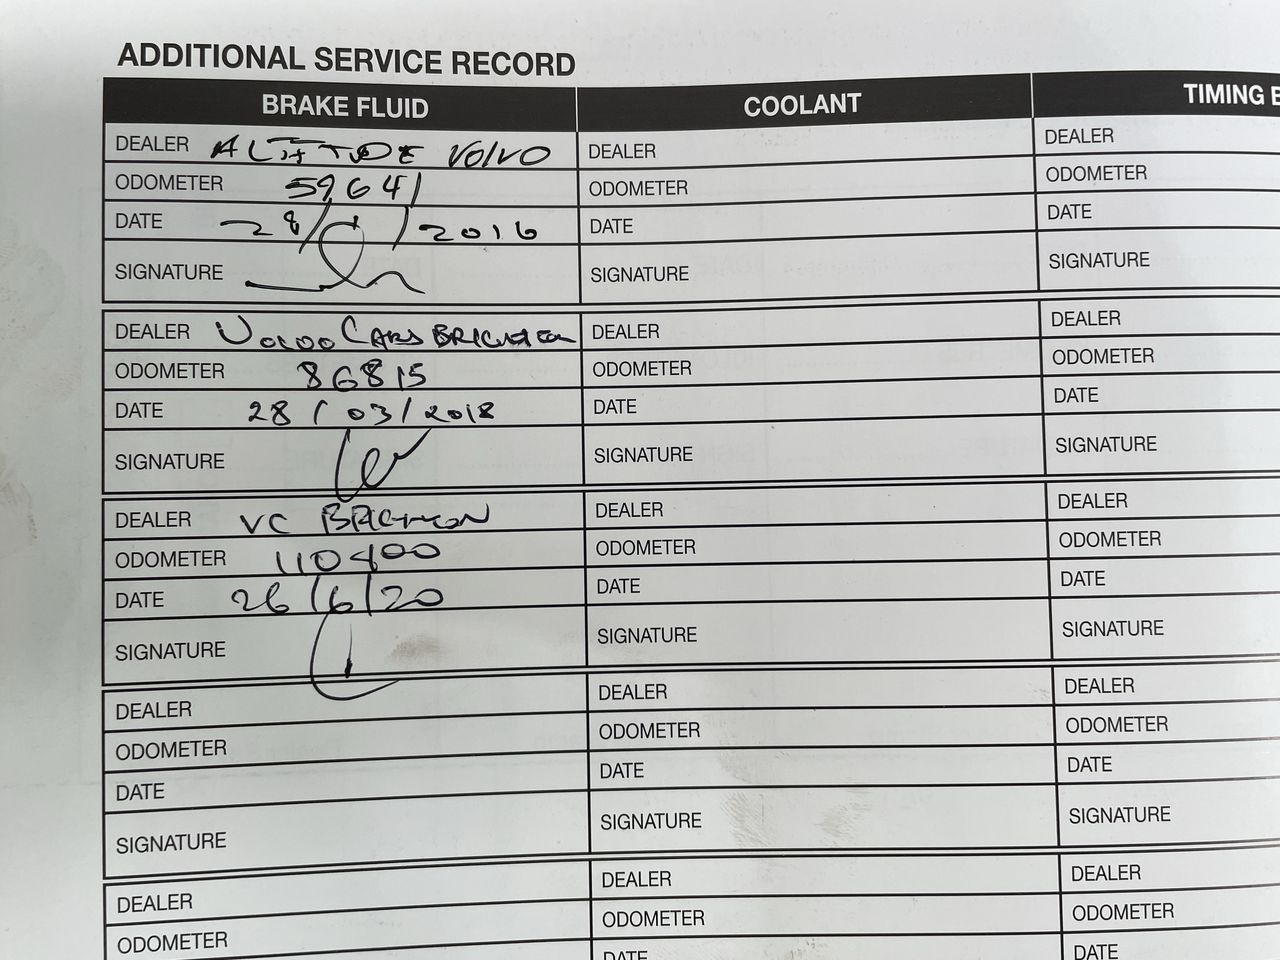 ADDITIONAL SERVICE RECORD
BRAKE FLUID COOLANT TIMING B
DEALER ALTITUDE VOLVO DEALER DEALER
ODOMETER 59641 ODOMETER ODOMETER
DATE 28/ /2016 DATE DATE
SIGNATURE SIGNATURE SIGNATURE
DEALER VOLVO CARS BRIGHTON DEALER DEALER
ODOMETER 86815 ODOMETER ODOMETER
DATE 28/03/2018 DATE DATE
SIGNATURE SIGNATURE SIGNATURE
DEALER VC BRIGHTON DEALER DEALER
ODOMETER 110400 ODOMETER ODOMETER
DATE 26/6/20 DATE DATE
SIGNATURE SIGNATURE SIGNATURE
DEALER DEALER DEALER
ODOMETER ODOMETER ODOMETER
DATE DATE DATE
SIGNATURE SIGNATURE SIGNATURE
DEALER DEALER DEALER
ODOMETER ODOMETER ODOMETER
DATE DATE